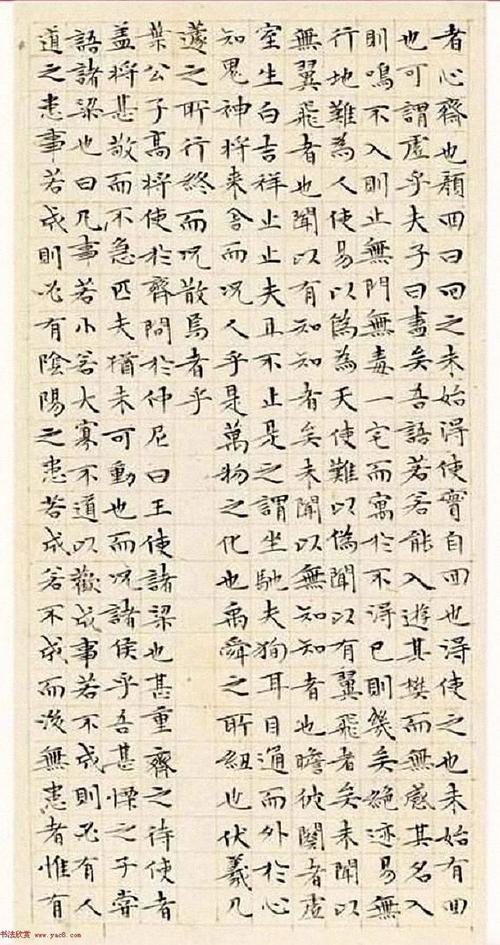 者心齋也顏回曰回之未始得使實自回也得使之也未始有回
也可謂虛乎夫子曰盡矣吾語若若能入遊其樊而無感其名入
則鳴不入則止無門無毒一宅而寓於不得已則幾矣絕迹易無
行地難為人使易以偽為天使難以偽聞以有翼飛者矣未聞以
無翼飛者也聞以有知知者矣未聞以無知知者也瞻彼闋者虛
室生白吉祥止止夫且不止是之謂坐馳夫狥耳目通而外於心
知鬼神將來舍而况人乎是萬物之化也禹舜之所紐也伏羲几
蘧之所行終而况散焉者乎
葉公子高將使於齊問於仲尼曰王使諸梁也甚重齊之待使者
盖將甚敬而不急匹夫猶未可動也而况諸侯乎吾甚慄之子嘗
語諸梁也曰凡事若小若大寡不道以歡成事若不成則必有人
道之患事若成則必有陰陽之患若成若不成而後無患者惟有
书法欣赏
www.yac8.com